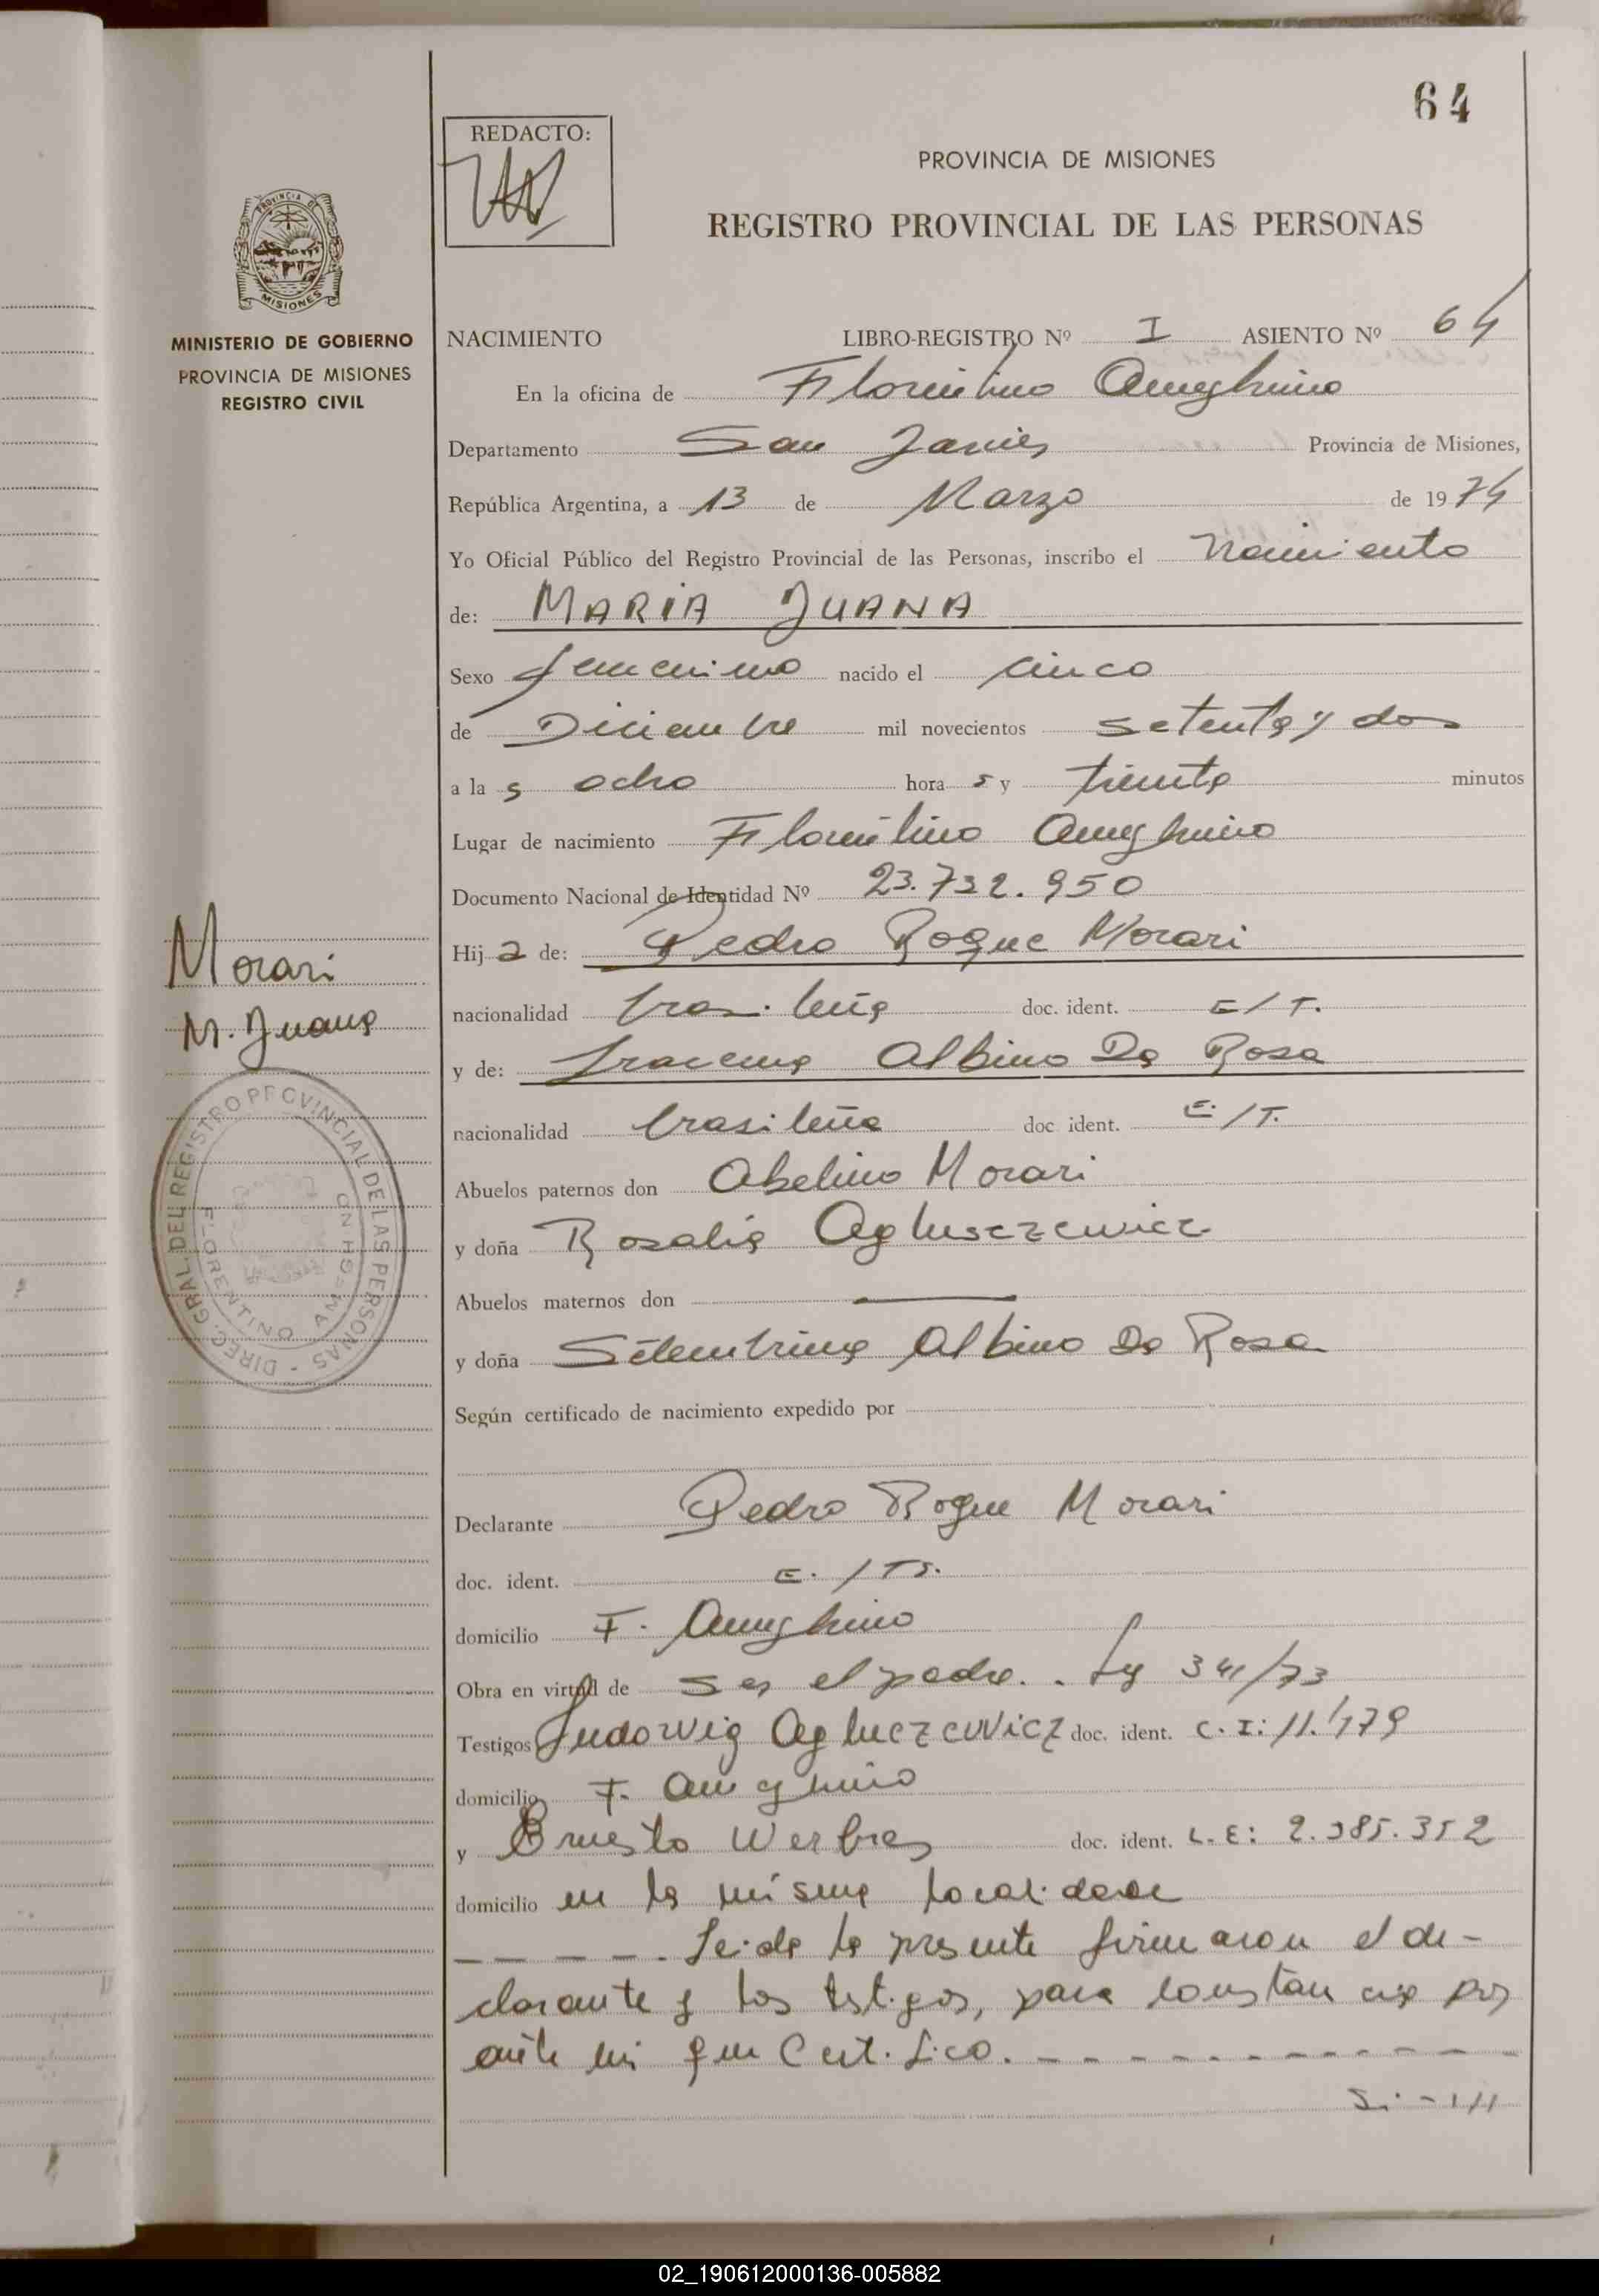 64
REDACTO:
PROVINCIA DE MISIONES
REGISTRO PROVINCIAL DE LAS PERSONAS
PROVINCIA DE
MISIONES
MINISTERIO DE GOBIERNO
PROVINCIA DE MISIONES
REGISTRO CIVIL
NACIMIENTO LIBRO-REGISTRO Nº I ASIENTO Nº 64
En la oficina de Florentino Ameghino
Departamento San Javier Provincia de Misiones,
República Argentina, a 13 de Marzo de 1974
Yo Oficial Público del Registro Provincial de las Personas, inscribo el nacimiento
de: MARIA JUANA
Sexo femenino nacido el cinco
de Diciembre mil novecientos setenta y dos
a la s ocho hora s y treinta minutos
Lugar de nacimiento Florentino Ameghino
Documento Nacional de Identidad Nº 23.732.950
Hij a de: Pedro Roque Morari
nacionalidad brasileña doc. ident. E/T.
y de: Iracema Albino Da Rosa
nacionalidad brasileña doc. ident. E./T.
Abuelos paternos don Abelino Morari
y doña Rosalia
Abuelos maternos don ———
y doña Setembrina Albino Da Rosa
Según certificado de nacimiento expedido por
Declarante Pedro Roque Morari
doc. ident. E. /Ts.
domicilio F. Ameghino
Obra en virtud de ser el padre. - Ley 341/73
Testigos Ludowig doc. ident. C. I: 11.179
domicilio F. Ameghino
y Ernesto doc. ident. L. E: 2.385.352
domicilio en la misma localidad
— — — — . Leida la presente firmaron el de-
clarante y los testigos, para constancia por
ante mi que Certifico. - - - - - - - - - - - -
Morari
M. Juana
DIREC. GRAL. DEL REGISTRO PROVINCIAL DE LAS PERSONAS -
FLORENTINO AMEGHINO
02_190612000136-005882